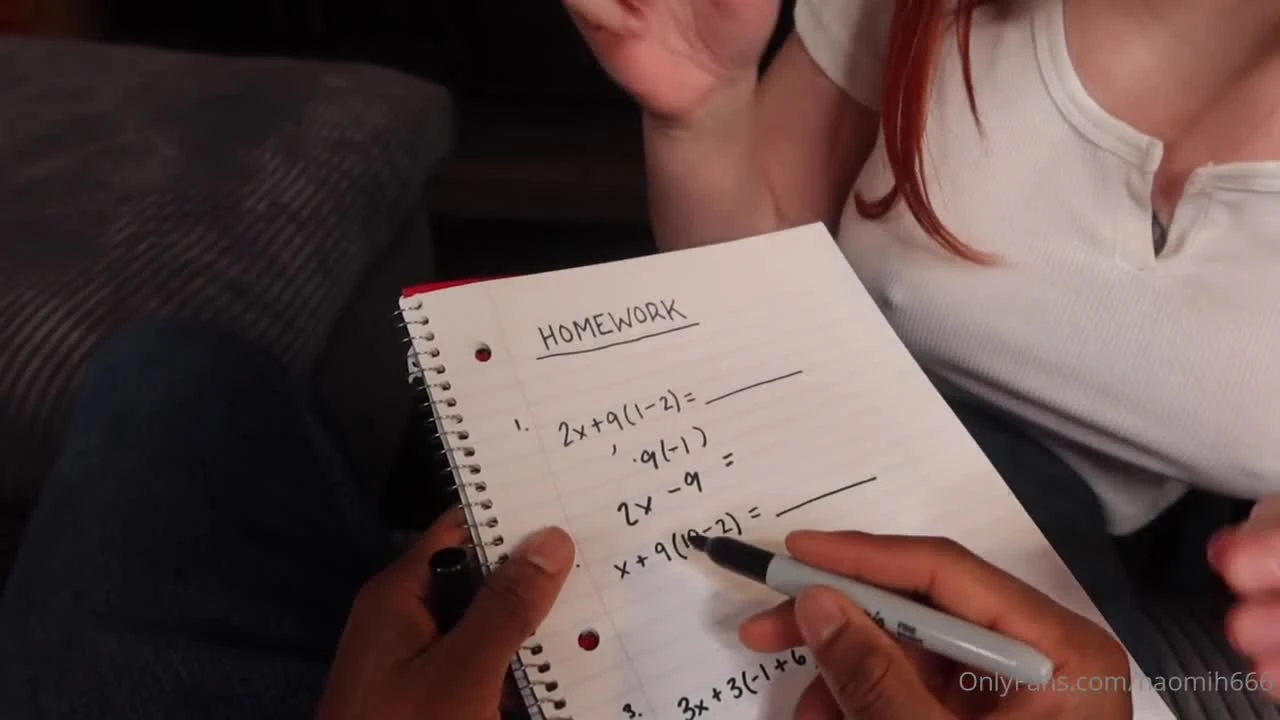 HOMEWORK
1. 2x+9(1-2)=
.9(-1)
2x -9 =
x+9(10-2)=
3. 3x+3(-1+6
OnlyFans.com/naomih666